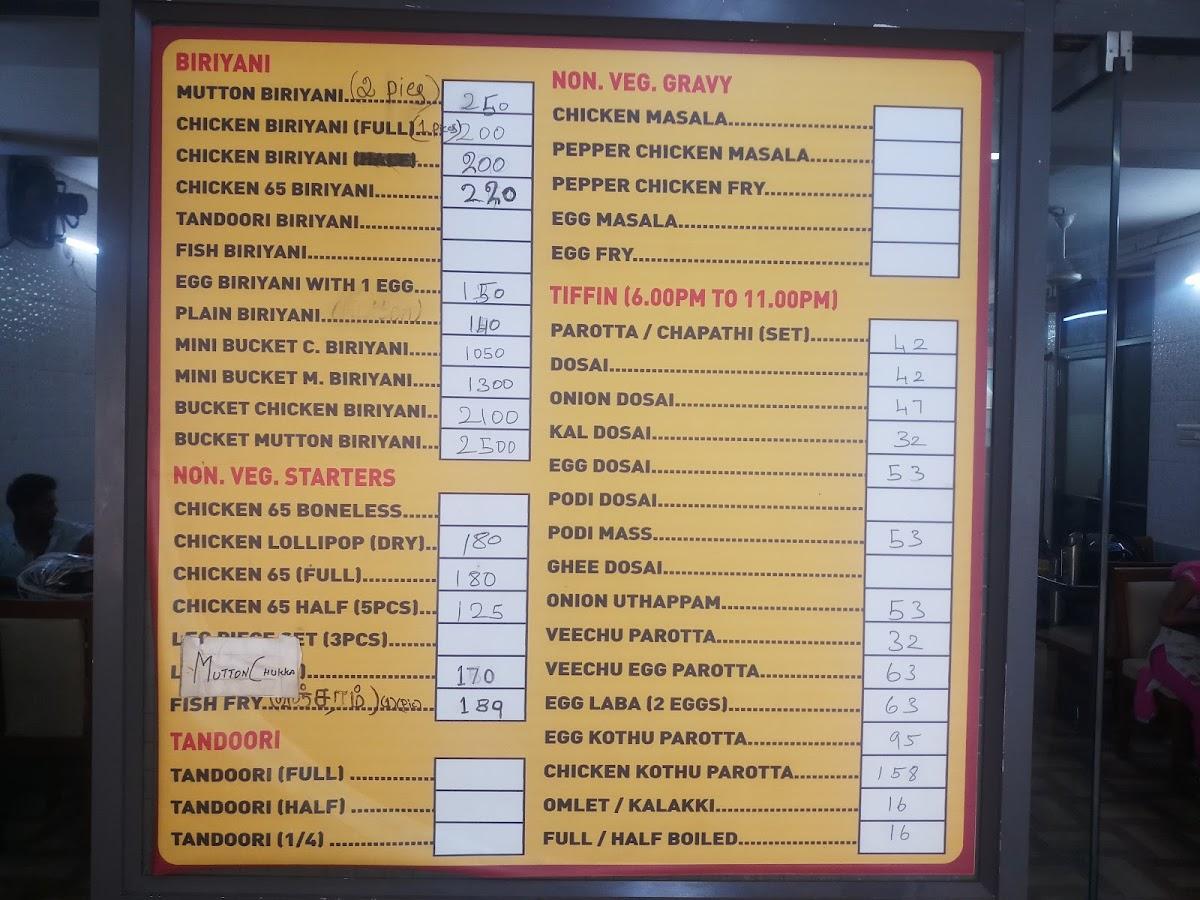 BIRIYANI
MUTTON BIRIYANI....(2 pies) 250
CHICKEN BIRIYANI (FULL)....(1 pices) 200
CHICKEN BIRIYANI (HALF).... 200
CHICKEN 65 BIRIYANI.... 220
TANDOORI BIRIYANI....
FISH BIRIYANI....
EGG BIRIYANI WITH 1 EGG.... 150
PLAIN BIRIYANI.... 140
MINI BUCKET C. BIRIYANI.... 1050
MINI BUCKET M. BIRIYANI.... 1300
BUCKET CHICKEN BIRIYANI.. 2100
BUCKET MUTTON BIRIYANI... 2500
NON. VEG. STARTERS
CHICKEN 65 BONELESS....
CHICKEN LOLLIPOP (DRY).. 180
CHICKEN 65 (FULL).... 180
CHICKEN 65 HALF (5PCS)... 125
LEG PIECE SET (3PCS)....
MUTTON CHUKKA .... 170
FISH FRY.... 189
TANDOORI
TANDOORI (FULL) ....
TANDOORI (HALF) ....
TANDOORI (1/4) ....
NON. VEG. GRAVY
CHICKEN MASALA....
PEPPER CHICKEN MASALA....
PEPPER CHICKEN FRY....
EGG MASALA....
EGG FRY....
TIFFIN (6.00PM TO 11.00PM)
PAROTTA / CHAPATHI (SET).... 42
DOSAI.... 42
ONION DOSAI.... 47
KAL DOSAI.... 32
EGG DOSAI.... 53
PODI DOSAI....
PODI MASS.... 53
GHEE DOSAI....
ONION UTHAPPAM.... 53
VEECHU PAROTTA.... 32
VEECHU EGG PAROTTA.... 63
EGG LABA (2 EGGS).... 63
EGG KOTHU PAROTTA.... 95
CHICKEN KOTHU PAROTTA.... 158
OMLET / KALAKKI.... 16
FULL / HALF BOILED.... 16